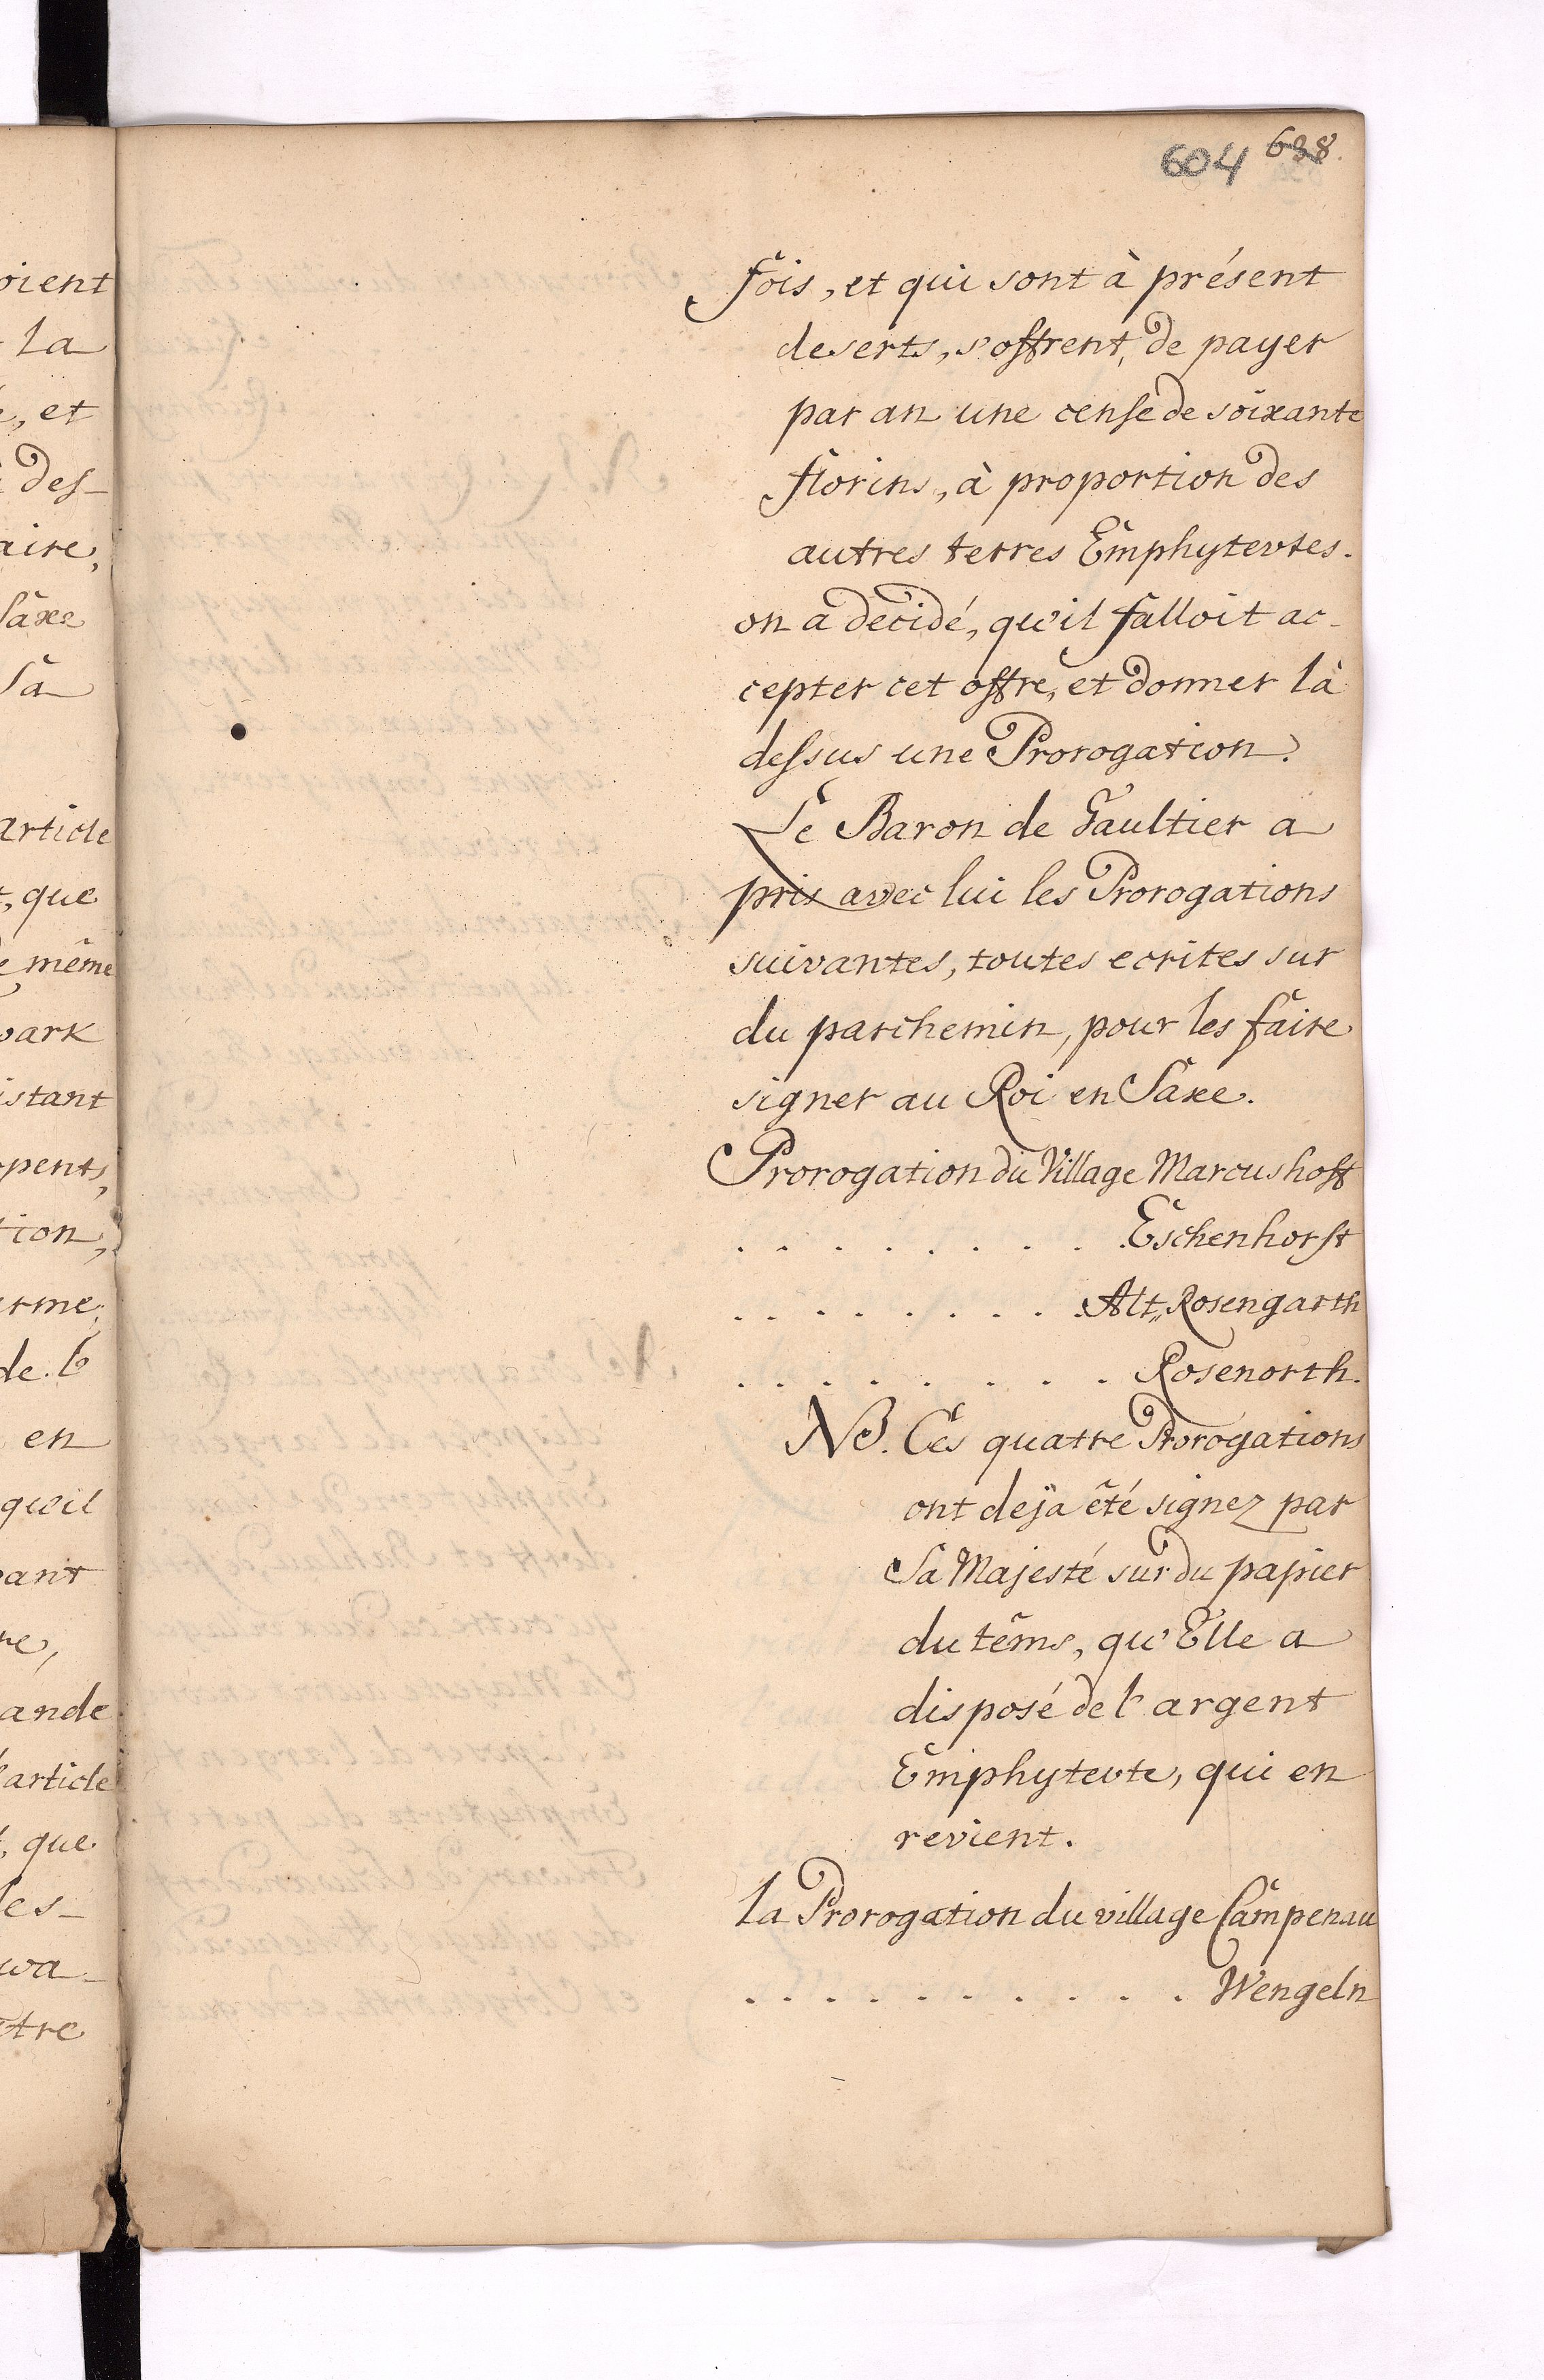 604 638.
fois, et qui sont à présent
deserts, s'offrent, de payer
par an une cense de soixante
florins, à proportion des
autres terres Emphytevtes.
on a decidé, qu'il falloit ac-
cepter cet offre, et donner là
dessus une Prorogation.
Le Baron de Gaultier a
pris avec lui les Prorogations
suivantes, toutes ecrites sur
du parchemin, pour les faire
signer au Roi en Saxe.
Prorogation du Village Marcushoff
. . . . . . . . . Eschenhorst
. . . . . . . . Alt,, Rosengarth
. . . . . . . . . Rosenorth.
NB. Ces quatre Prorogations
ont deja été signez par
Sa Majesté sur du papier
du tems, qu'Elle a
disposé de l'argent
Emphytevte, qui en
revient.
la Prorogation du village Campenau
. . . . . . . . . . . Wengeln
oient
la
, et
des-
aire,
Saxe
Sa
article
, que
même
istant
pents,
tion,
en
qu'il
ande
l'article
, que
les-
wa-